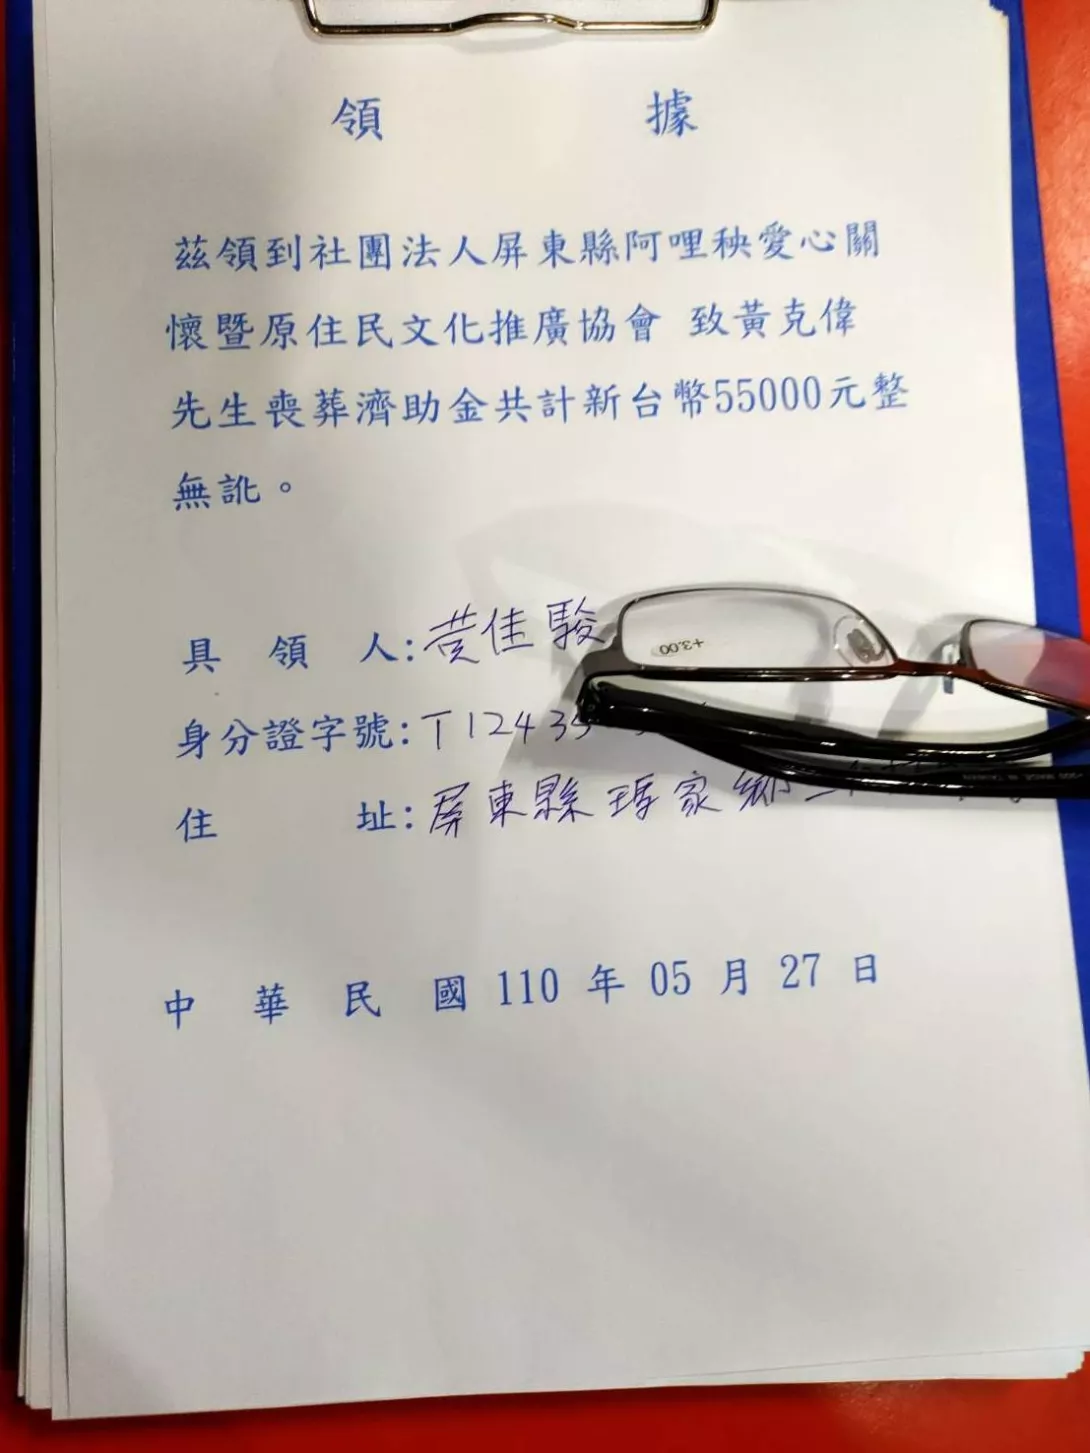 領 據
茲領到社團法人屏東縣阿哩秧愛心關
懷暨原住民文化推廣協會 致黃克偉
先生喪葬濟助金共計新台幣55000元整
無訛。
具 領 人:黃佳駿
身分證字號:T12435
住 址:屏東縣瑪家鄉
中 華 民 國 110 年 05 月 27 日
+3.00